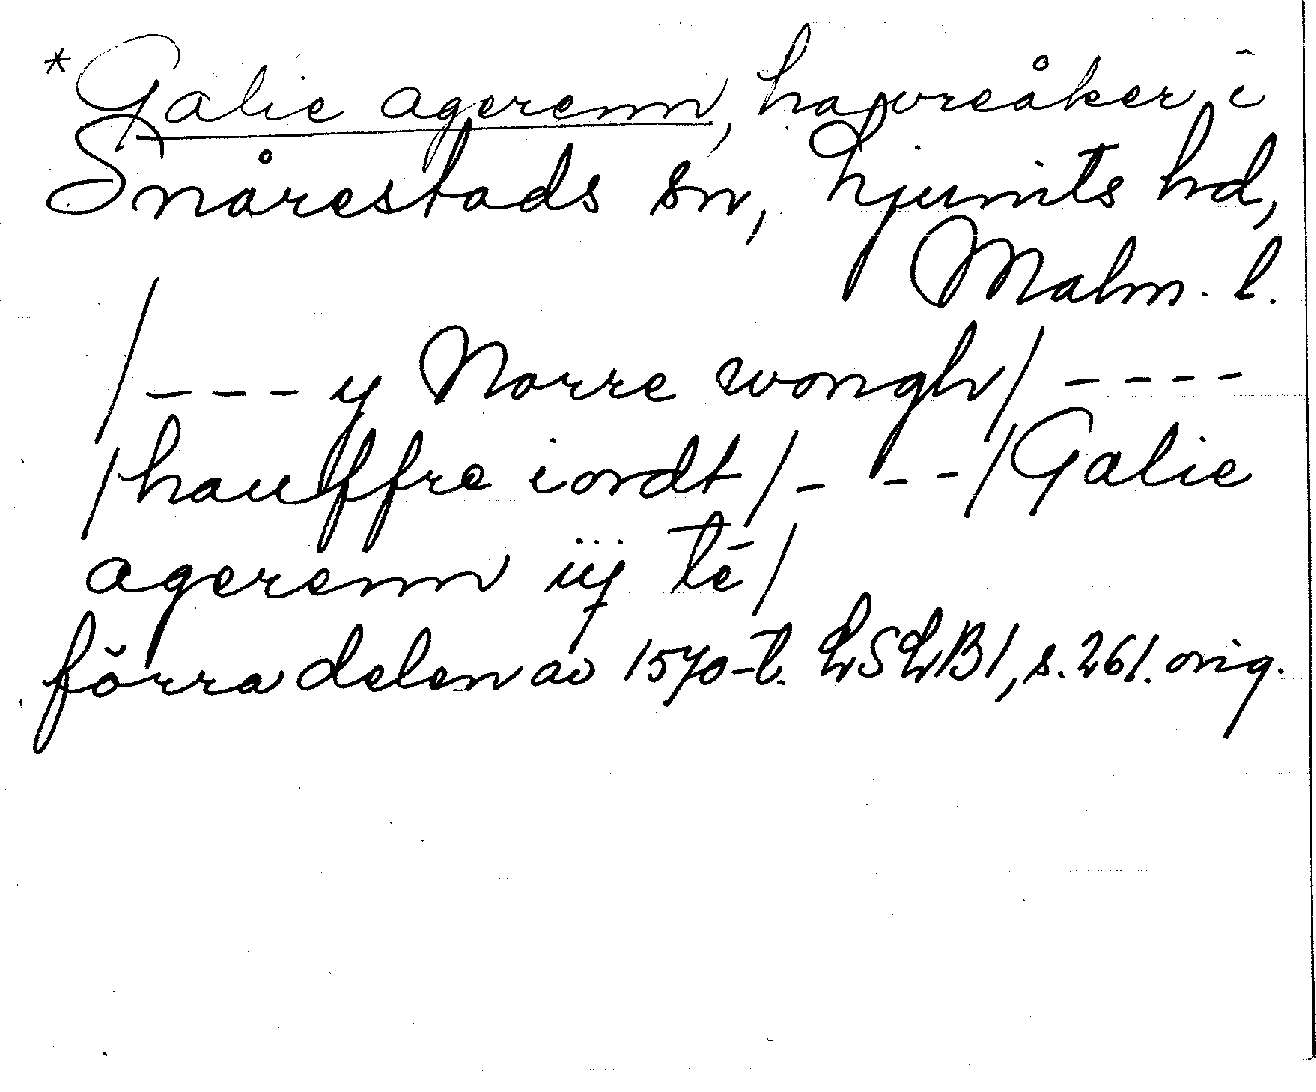 *Galie agerenn, havreåker i
Snårestads sn, Ljunits hd,
Malm. l.
/ - - - y Norre wongh/ - - - -
/hauffre iordt/ - - - /Galie
agerenn iij té/
förra delen av 1570-t. LSLB1, s. 261. orig.